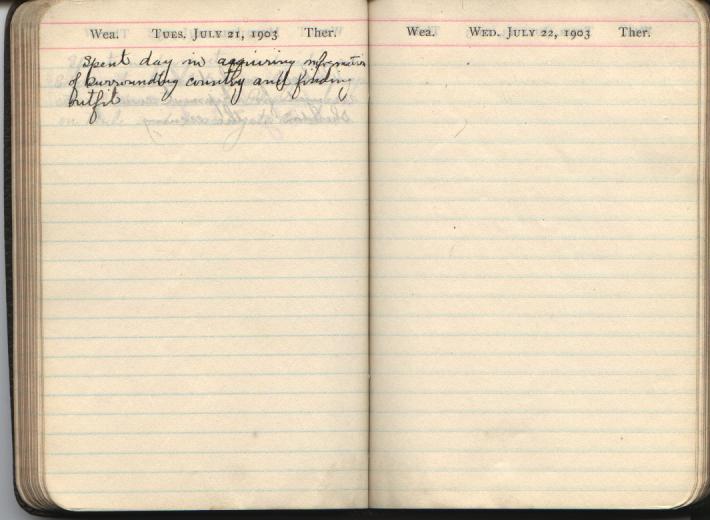 Wea. TUES. JULY 21, 1903 Ther.
Spent day in aqquiring information
of surrounding country and finding
outfit
Wea. WED. JULY 22, 1903 Ther.